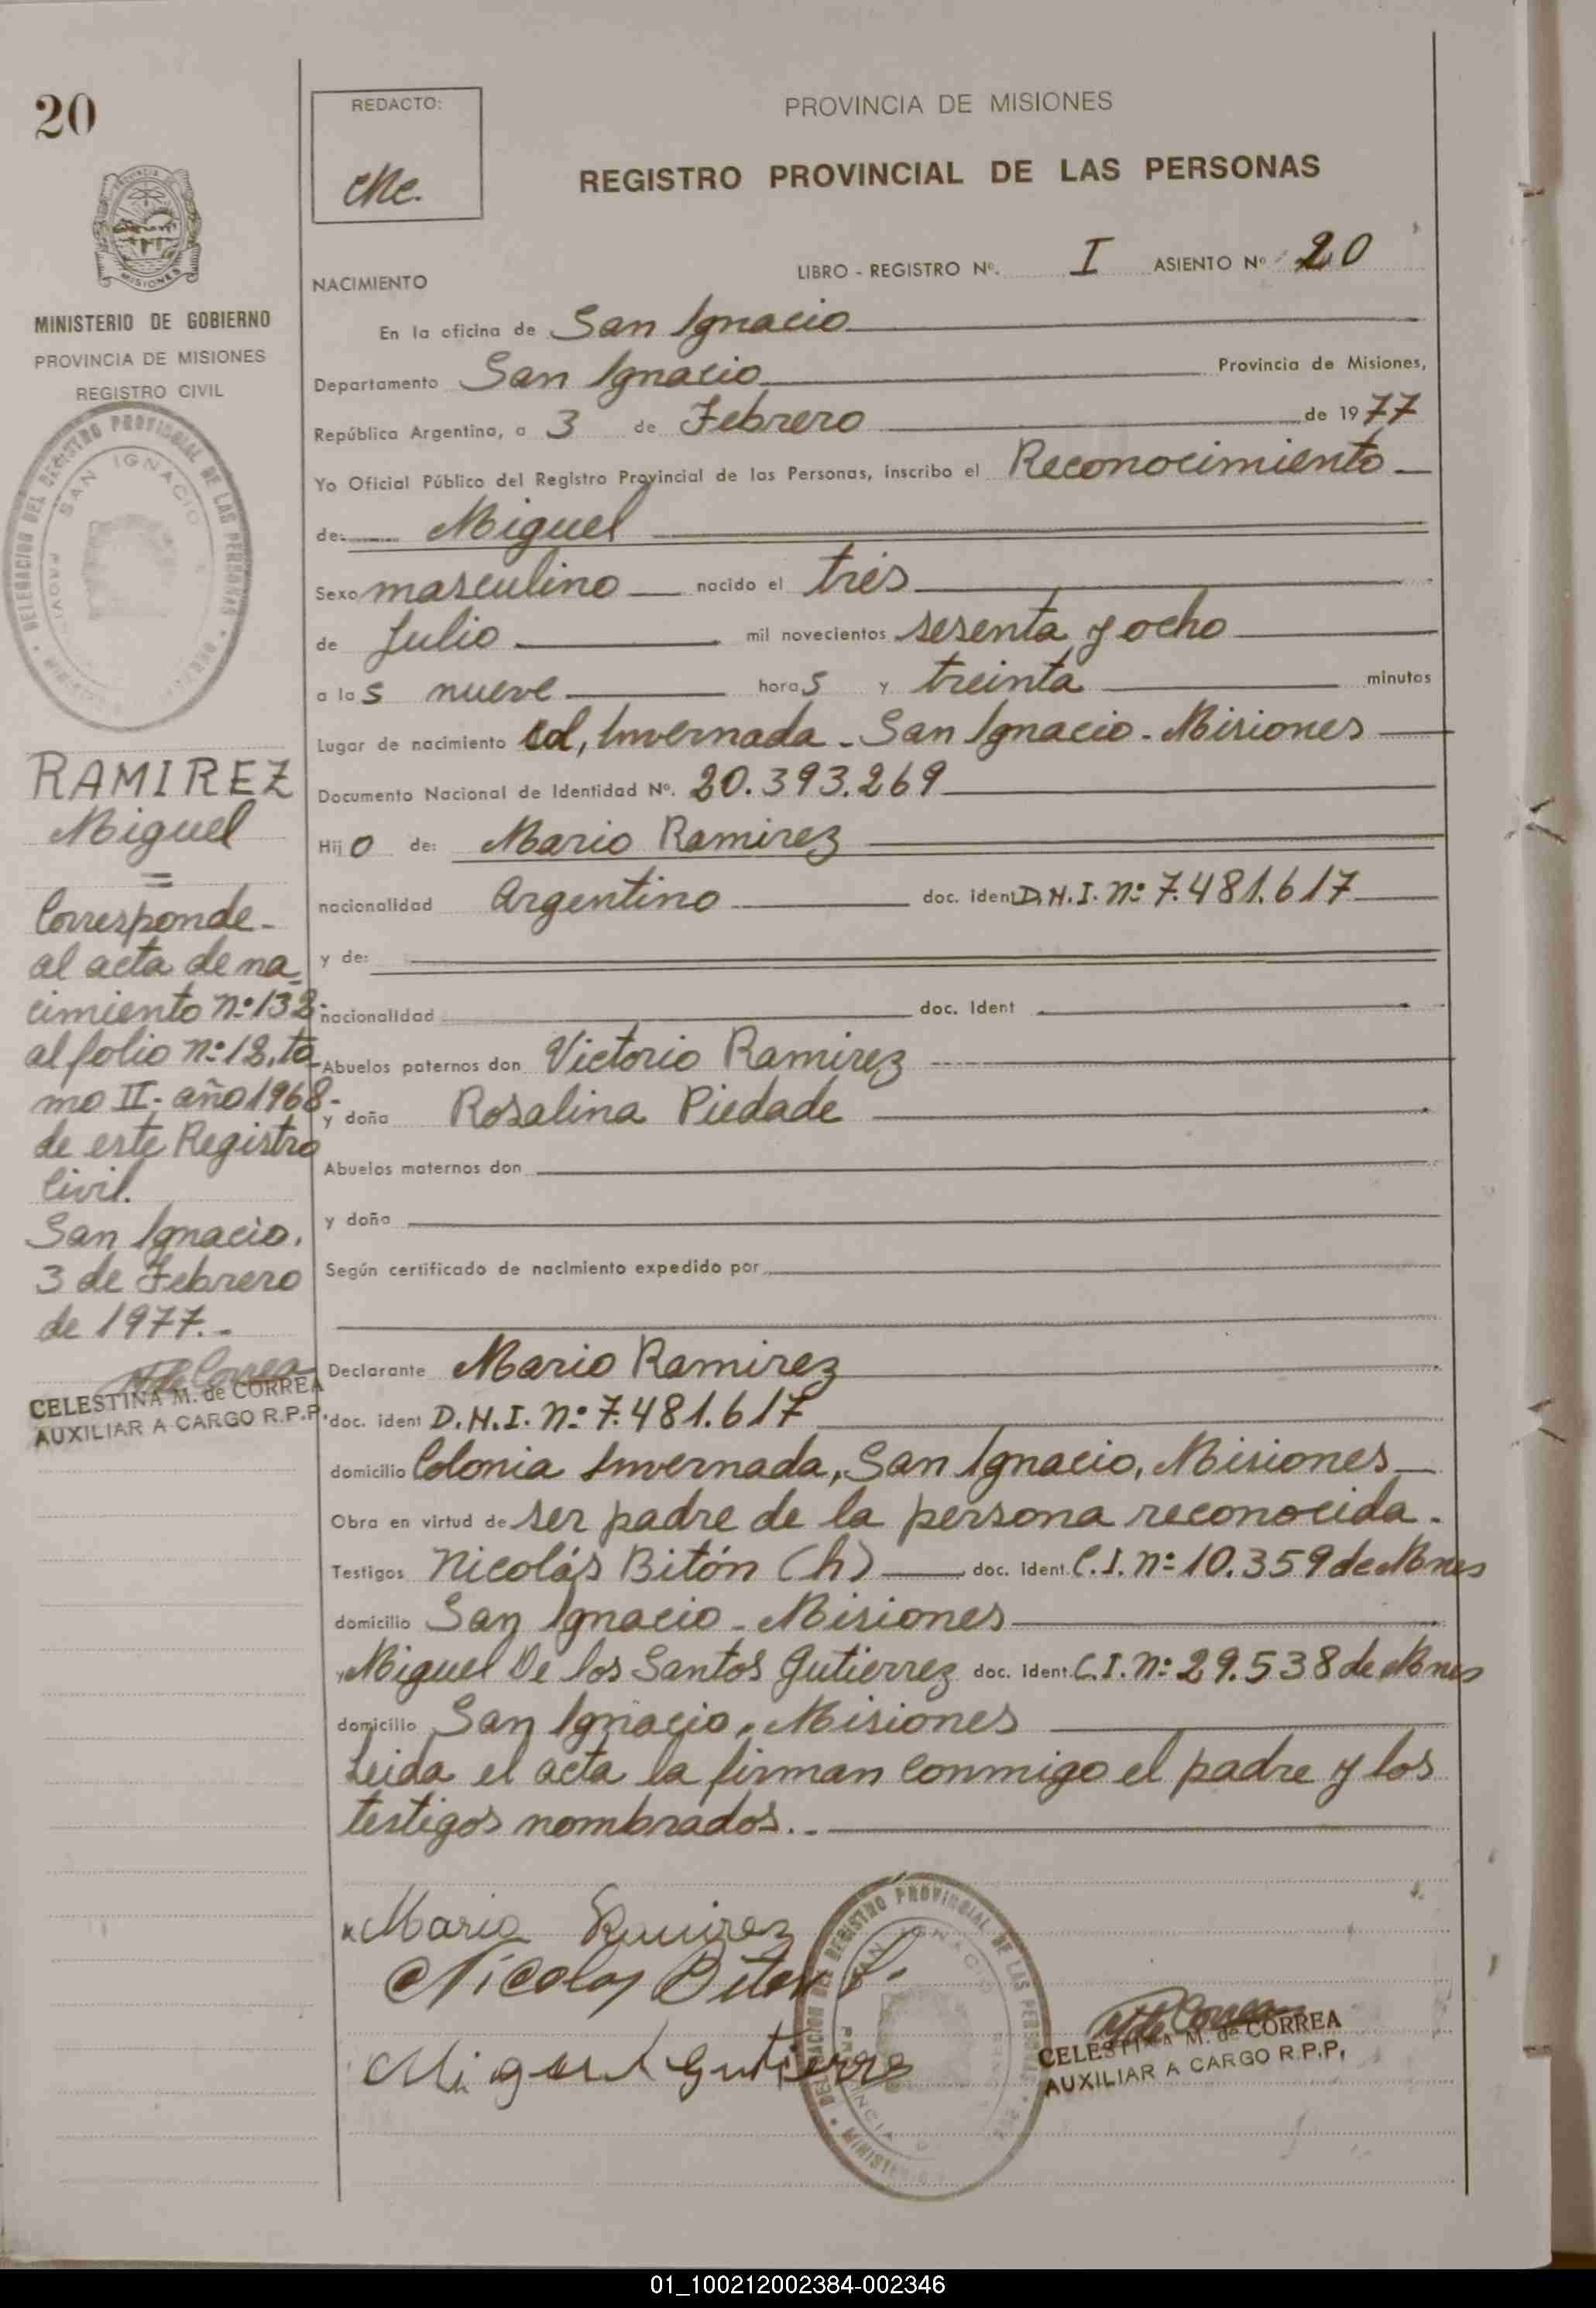 20
REDACTO:
PROVINCIA DE MISIONES
REGISTRO PROVINCIAL DE LAS PERSONAS
LIBRO - REGISTRO Nº. I ASIENTO Nº 20
NACIMIENTO
En la oficina de San Ignacio
Departamento San Ignacio Provincia de Misiones,
República Argentina, a 3 de Febrero de 1977
Yo Oficial Público del Registro Provincial de las Personas, inscribo el Reconocimiento
de: Miguel
Sexo masculino nacido el tres
de Julio mil novecientos sesenta y ocho
a las nueve horas y treinta minutos
Lugar de nacimiento Col, Invernada - San Ignacio - Misiones
Documento Nacional de Identidad Nº. 20.393.269
Hijo de: Mario Ramirez
nacionalidad Argentino doc. ident D.N.I. nº 7.481.617
y de:
nacionalidad doc. Ident
Abuelos paternos don Victorio Ramirez
y doña Rosalina Piedade
Abuelos maternos don
y doña
Según certificado de nacimiento expedido por
Declarante Mario Ramirez
doc. ident D.N.I. nº 7.481.617
domicilio Colonia Invernada, San Ignacio, Misiones
Obra en virtud de ser padre de la persona reconocida.
Testigos Nicolás Bitón (h) doc. ident. C.I. nº 10.359 de Mnes
domicilio San Ignacio - Misiones
y Miguel De los Santos Gutierrez doc. ident. C.I. nº 29.538 de Mnes
domicilio San Ignacio, Misiones
Leida el acta la firman conmigo el padre y los
testigos nombrados.-
Mario Ramirez
Nicolas Biton h.
Miguel Gutierre
DELEGACION DEL REGISTRO PROVINCIAL DE LAS PERSONAS
SAN IGNACIO
CELESTINA M. de CORREA
AUXILIAR A CARGO R.P.P.
PROVINCIA DE
MISIONES
MINISTERIO DE GOBIERNO
PROVINCIA DE MISIONES
REGISTRO CIVIL
DELEGACION DEL REGISTRO PROVINCIAL DE LAS PERSONAS
SAN IGNACIO
RAMIREZ
Miguel
Corresponde-
al acta de na
cimiento nº 132-
al folio nº 18, to
mo II - año 1968-
de este Registro
Civil.
San Ignacio,
3 de Febrero
de 1977.-
CELESTINA M. de CORREA
AUXILIAR A CARGO R.P.P.
01_100212002384-002346